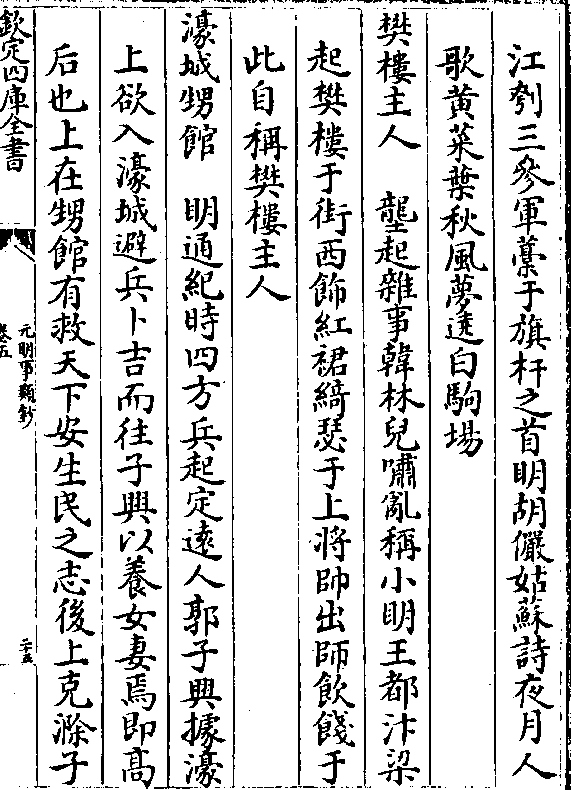 江刳三參軍藁于旗杆之首明胡儼姑蘇詩夜月人
歌黄菜葉秋風夢透白駒場
樊樓主人　龍起雜事韓林兒嘯亂稱小明王都汴梁
起樊樓于街西飾紅裙綺瑟于上將帥出師飲餞于
此自稱樊樓主人
濠城甥館　明通紀時四方兵起定遠人郭子興據濠
上欲入濠城避兵卜吉而往子興以養女妻焉即髙
后也上在甥館有救天下安生民之志後上克滁子
欽定四庫全書
元明事類鈔
卷五
二十五